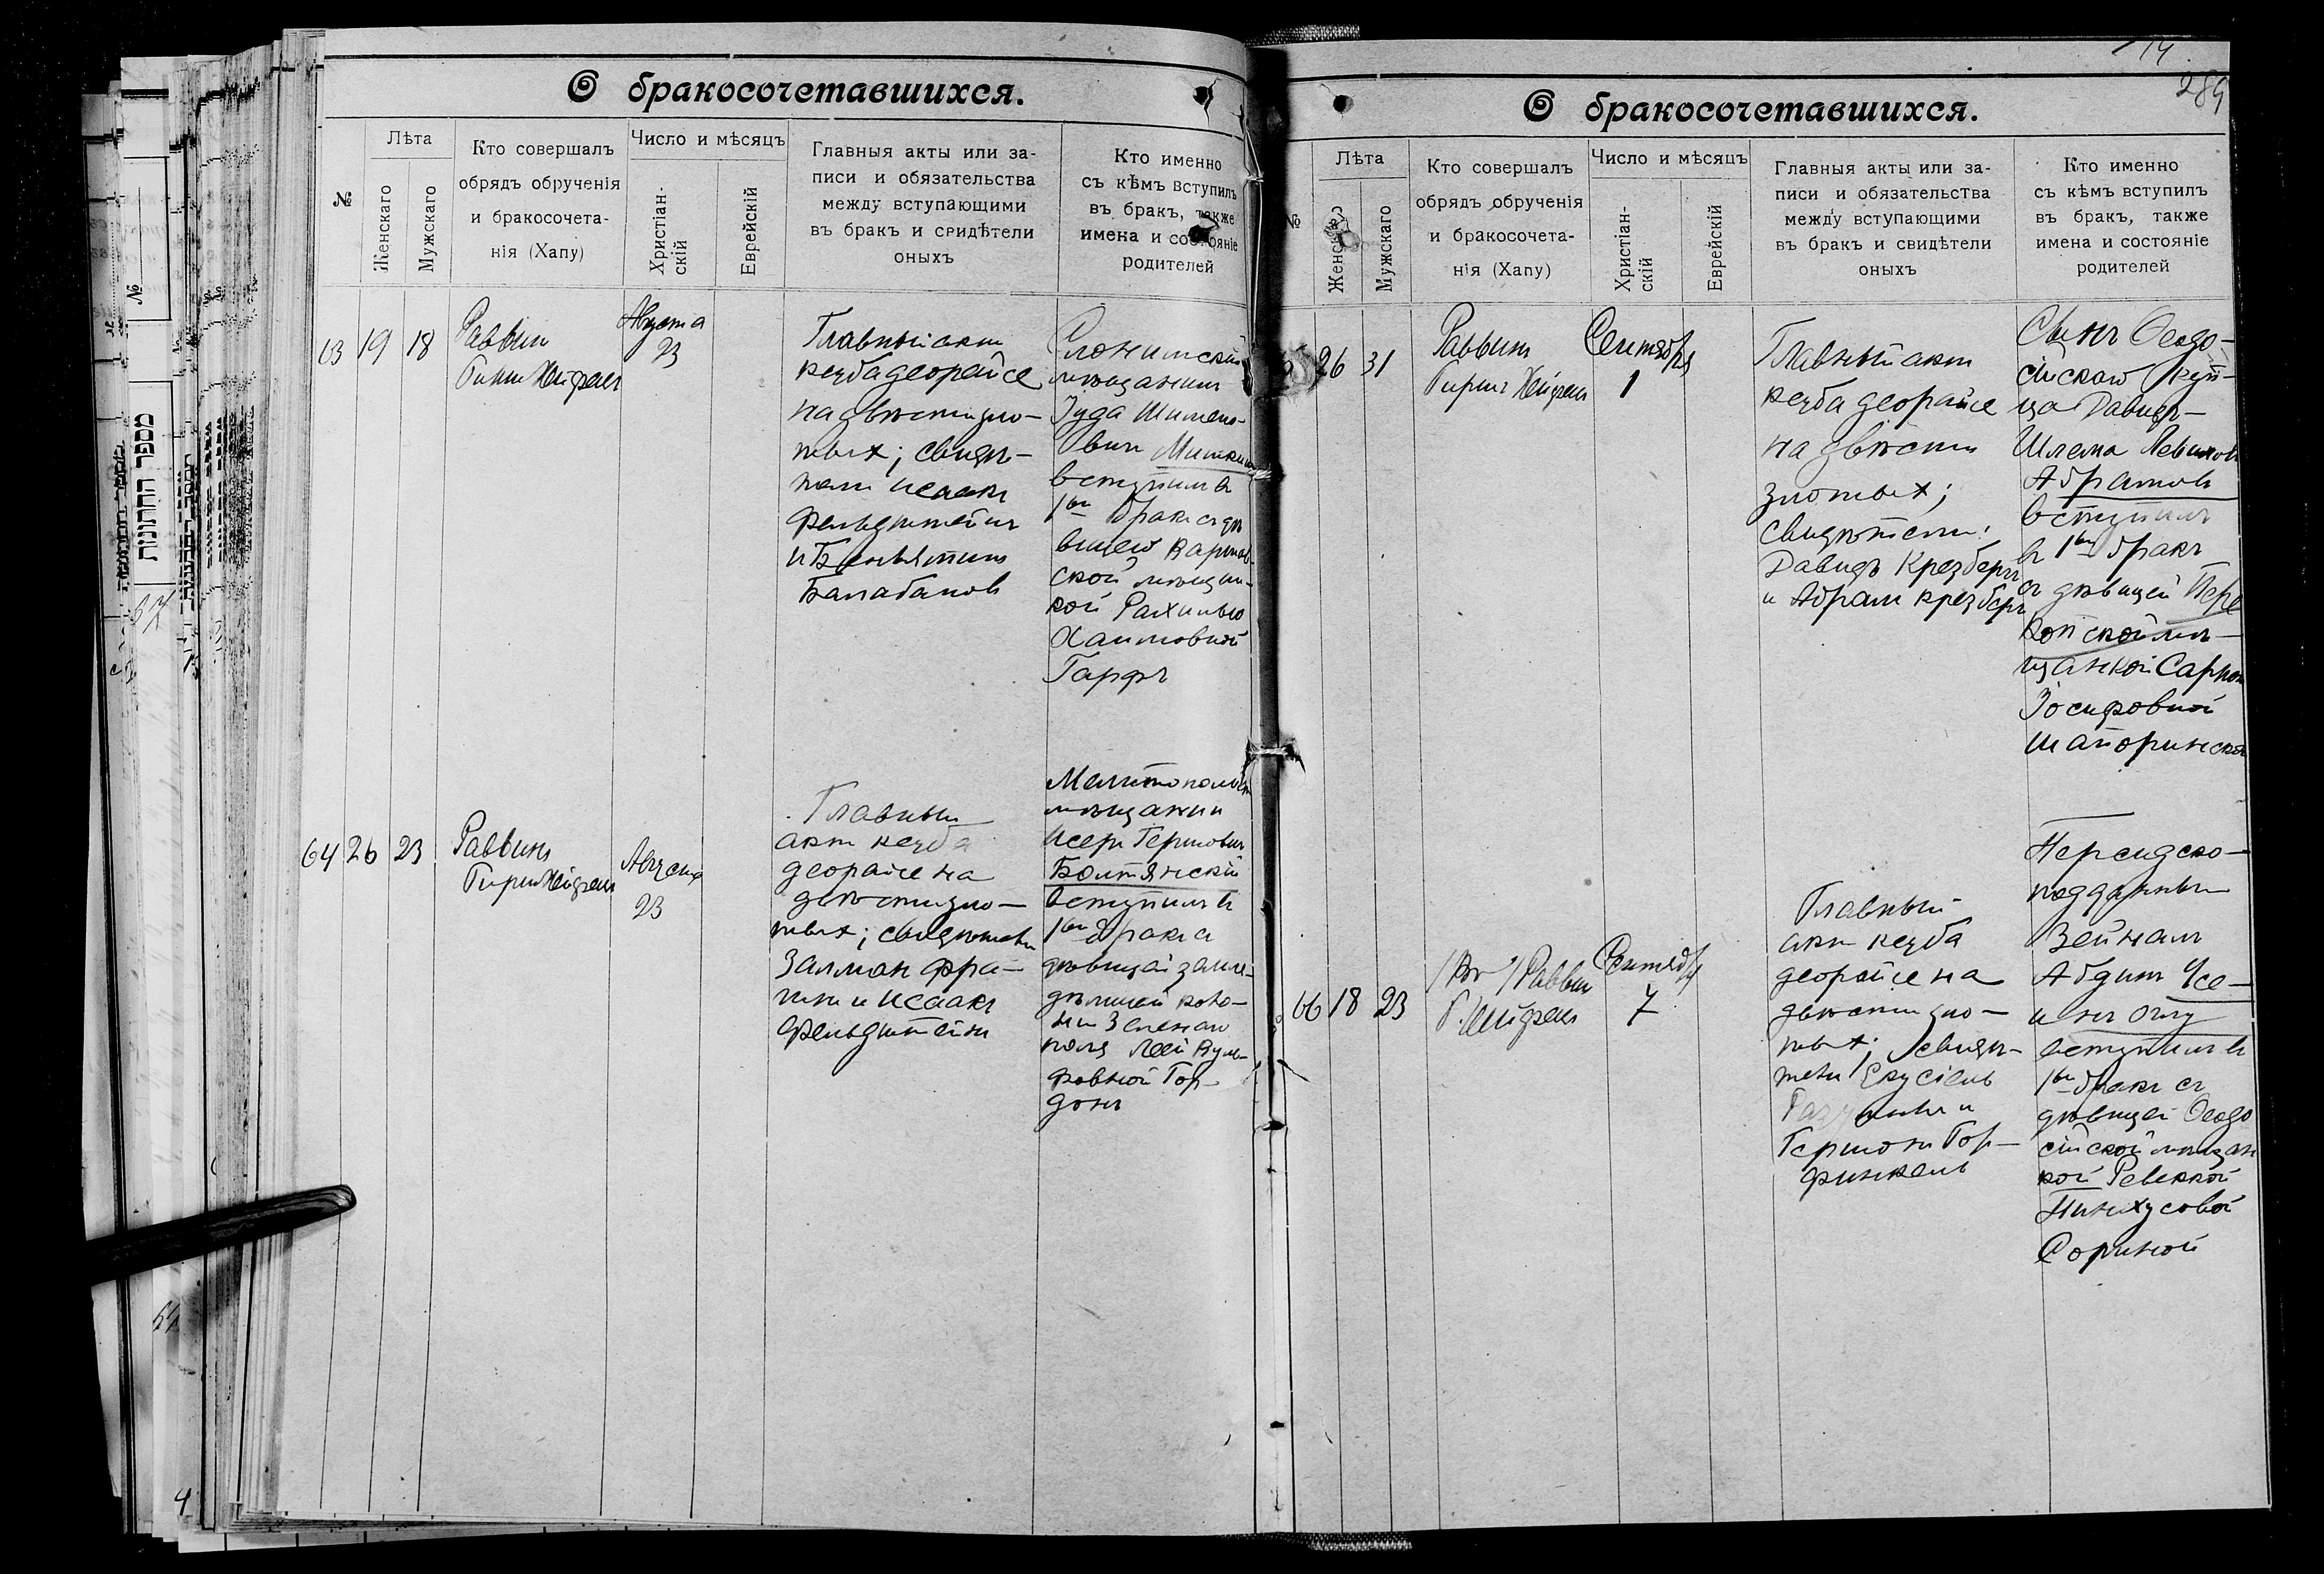 О бракосочетавшихся.
№
Лѣта
Женскаго
Мужскаго
Кто совершалъ
обрядъ обрученія
и бракосочета-
нія (Хапу)
Число и мѣсяцъ
Христіан-
скій
Еврейскій
Главныя акты или за-
писи и обязательства
между вступающими
въ бракъ и сридѣтели
оныхъ
Кто именно
съ кѣмъ вступилъ
въ бракъ, также
имена и состояніе
родителей
63 19 18
Раввин
Гирш Хейфец
Августа
23
Главный акт
кезба деорайсе
на двѣсти зло-
тых; свидѣ-
тели Исаакъ
Фельдштейнъ
и Беньяминъ
Балабановъ
Слонимскій
мѣщанинъ
Іуда Шимено-
вич
вступилъ въ
1ый бракъ съ дѣ-
вицею Варшав-
ской мѣщан-
кой Рахилью
Хаимовной
Гарфъ
64 26 23
Раввинъ
Гирш Хейфец
Августа
23
Главный
акт кезба
деорайсе на
двѣсти зло-
тых; свидѣтели
Залман
и Исаакъ
Фельдштейнъ
Мелитопольскій
мѣщанин
Исеръ Гершович
Болтянскій
вступилъ въ
1ый бракъ съ
дѣвицей земле-
дѣлицей коло-
ніи Зеленаго
поля Леей Вуль-
фовной Гор-
донъ
14
289
О бракосочетавшихся.
№
Лѣта
Женскаго
Мужскаго
Кто совершалъ
обрядъ обрученія
и бракосочета-
нія (Хапу)
Число и мѣсяцъ
Христіан-
скій
Еврейскій
Главныя акты или за-
писи и обязательства
между вступающими
въ бракъ и свидѣтели
оныхъ
Кто именно
съ кѣмъ вступилъ
въ бракъ, также
имена и состояніе
родителей
26 31
Раввинъ
Гиршъ Хейфец
Сентября
1
Главный акт
кезба деорайсе
на двѣсти
злотых;
свидѣтели:
Давидъ Крезберг
и Абрам Крезберг
Сынъ Ѳеодо-
сійскаго куп-
ца Давидъ-
Шлема Левиков
Абрамовъ
вступилъ
въ 1ый бракъ
съ дѣвицей Пере
копской мѣ-
щанкой Саррой
Іосифовной
Шапоринской
66 18 23
Раввин
Г. Хейфец
Сентября
7
Главный
акт кезба
деорайсе на
двѣсти зло-
тых; свидѣ-
тели Екусіель
и
Гершонъ Гор-
финкель
Персидско-
подданный
Зейналъ
Абдинъ Усе-
инъ оглу
вступилъ въ
1ый бракъ съ
дѣвицей Ѳеодо
сійской мѣщан
кой Ревеккой
Пинхусовой
Сориной